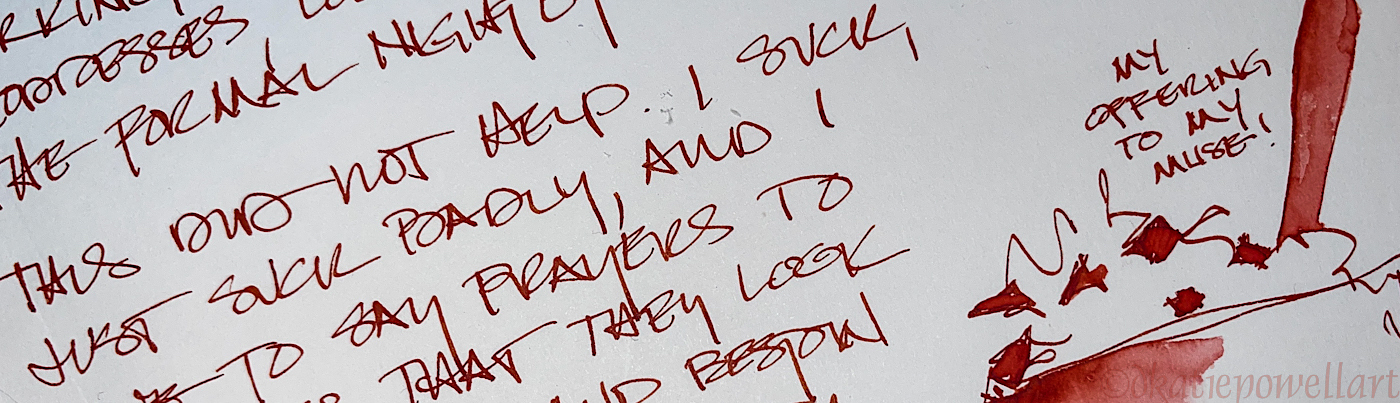 ADDRESSES
THE FORMAL NIGHT OF
THIS DID NOT HELP. I SUCK,
JUST SUCK BADLY, AND I
TO SAY PRAYERS TO
THAT THEY LOOK
AND BESTOW
MY
OFFERING
TO MY
MUSE!
©okatiepowellart